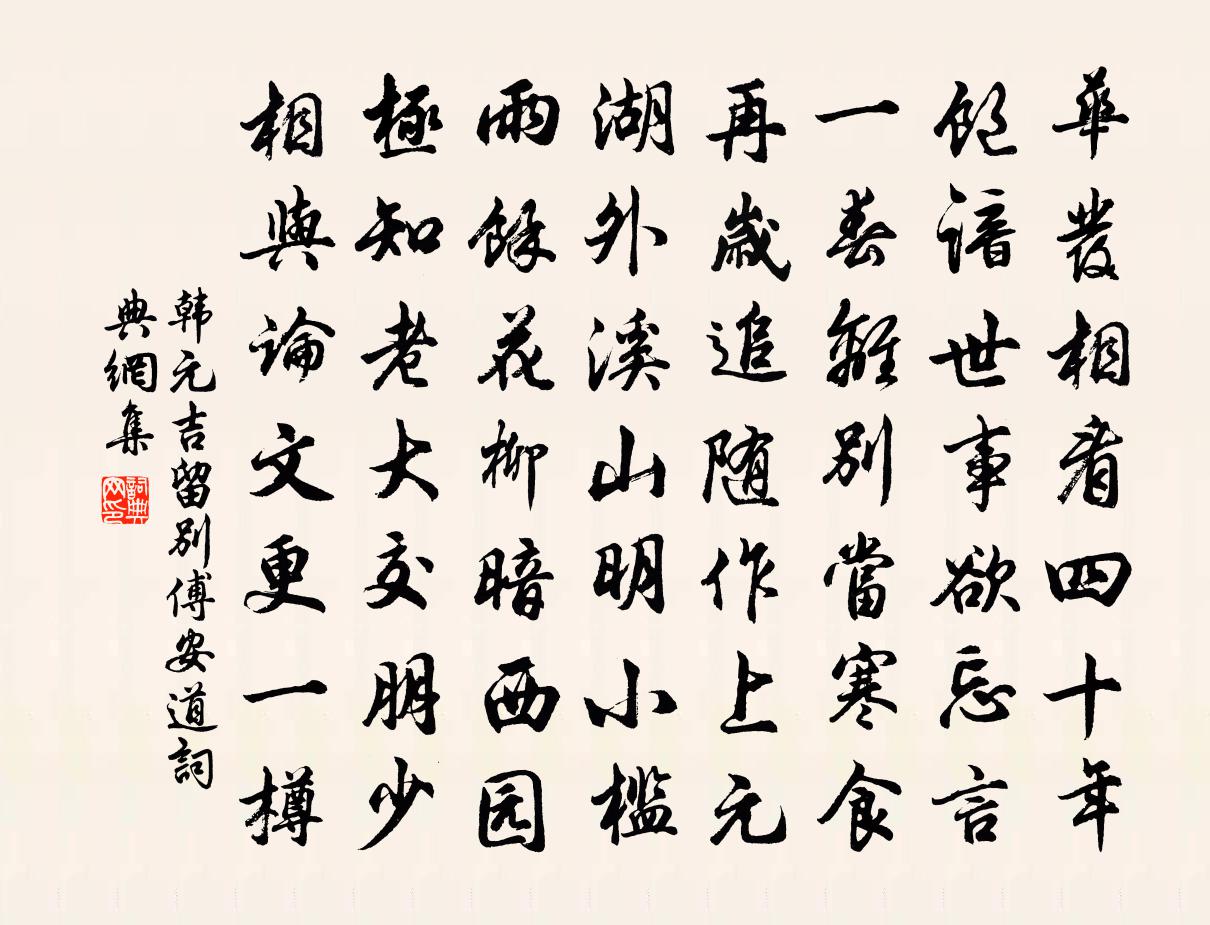 華發相看四十年
飽諳世事欲忘言
一春離別當寒食
再歲追隨作上元
湖外溪山明小檻
雨餘花柳暗西园
極知老大交朋少
相與論文更一樽
韩元吉留别傅安道詞
典網集
詞典
网印